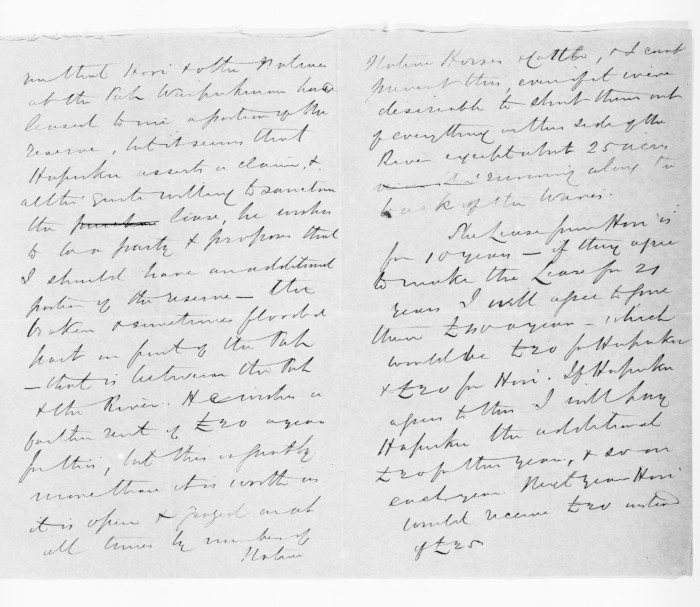 me that Hori & other Natives
at the Pah Waipukurau had
leased to me a portion of the
reserve, but it seems that
Hapuku asserts a claim, &
altho' quite willing to sanction
the purchase lease, he wishes
to be a party & proposes that
I should have an additional
portion of the reserve — the
broken & sometimes flooded
part in front of the Pah
— that is between the Pah
& the River. He wishes a
further rent of £20 a year
for this, but this is greatly
more than it is worth as
it is open & grazed on at
all times by numbers of
Native
Native Horses & Cattle, & I can't
prevent this, even if it were
desireable to shut them out
of everything on this side of the
River except about 25 acres
running along the
back of the Wares.
The Lease from Hori is
for 10 years — if they agree
to make the Lease for 21
years I will agree to give
them £40 a year — which
would be £20 for Hapuku
& £20 for Hori. If Hapuku
agrees to this I will pay
Hapuku the additional
£20 for this year, & so on
each year. Next year Hori
would receive £20 instead
of £25